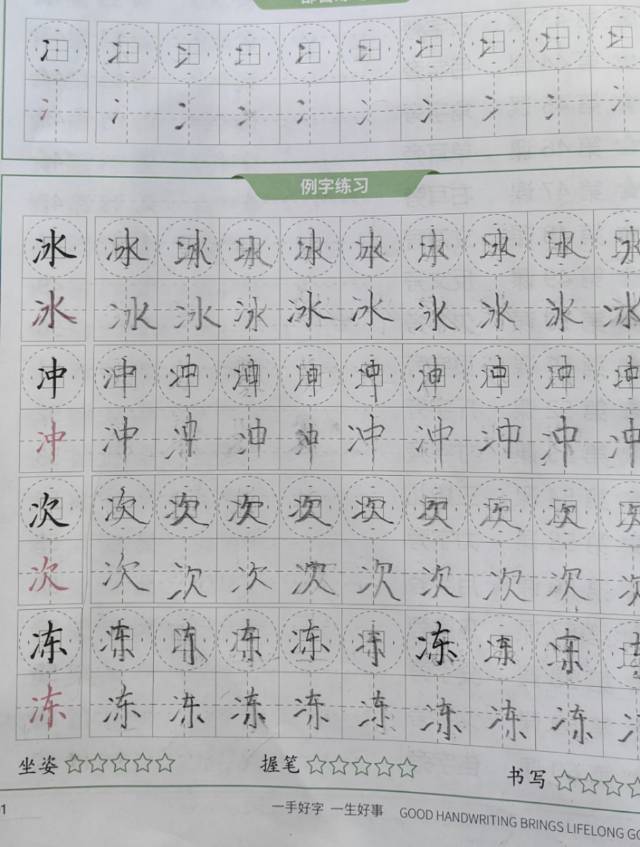 冫 冫 冫 冫 冫 冫 冫 冫 冫 冫
冫 冫 冫 冫 冫 冫 冫 冫 冫 冫
例字练习
冰 冰 冰 冰 冰 冰 冰 冰 冰 冰
冰 冰 冰 冰 冰 冰 冰 冰 冰 冰
冲 冲 冲 冲 冲 冲 冲 冲 冲 冲
冲 冲 冲 冲 冲 冲 冲 冲 冲 冲
次 次 次 次 次 次 次 次 次
次 次 次 次 次 次 次 次 次
冻 冻 冻 冻 冻 冻 冻 冻 冻
冻 冻 冻 冻 冻 冻 冻 冻 冻
坐姿 ☆☆☆☆☆ 握笔 ☆☆☆☆☆ 书写 ☆☆☆☆
一手好字 一生好事 GOOD HANDWRITING BRINGS LIFELONG